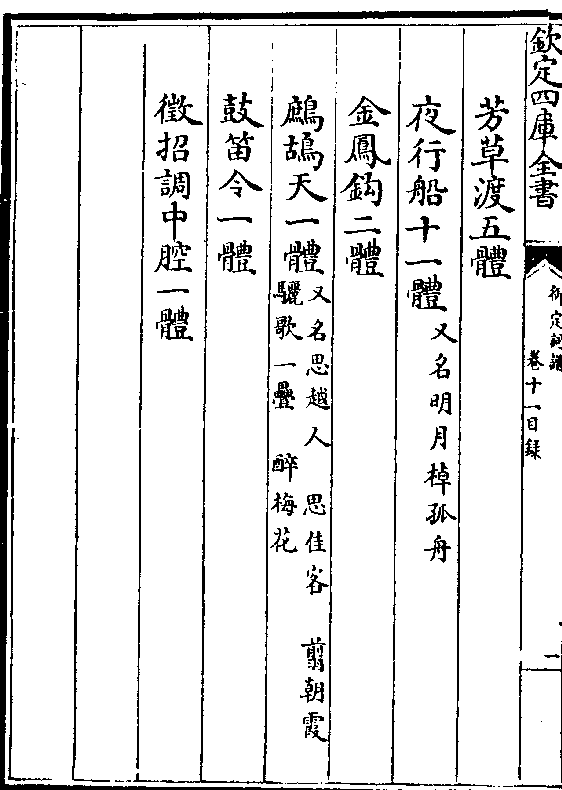 欽定四庫全書
御定詞譜
卷十一目錄
一
芳草渡五體
夜行船十一體又名明月棹孤舟
金鳳鈎二體
鷓鴣天一體又名思越人 思佳客 翦朝霞
驪歌一疊 醉梅花
鼓笛令一體
徵招調中腔一體